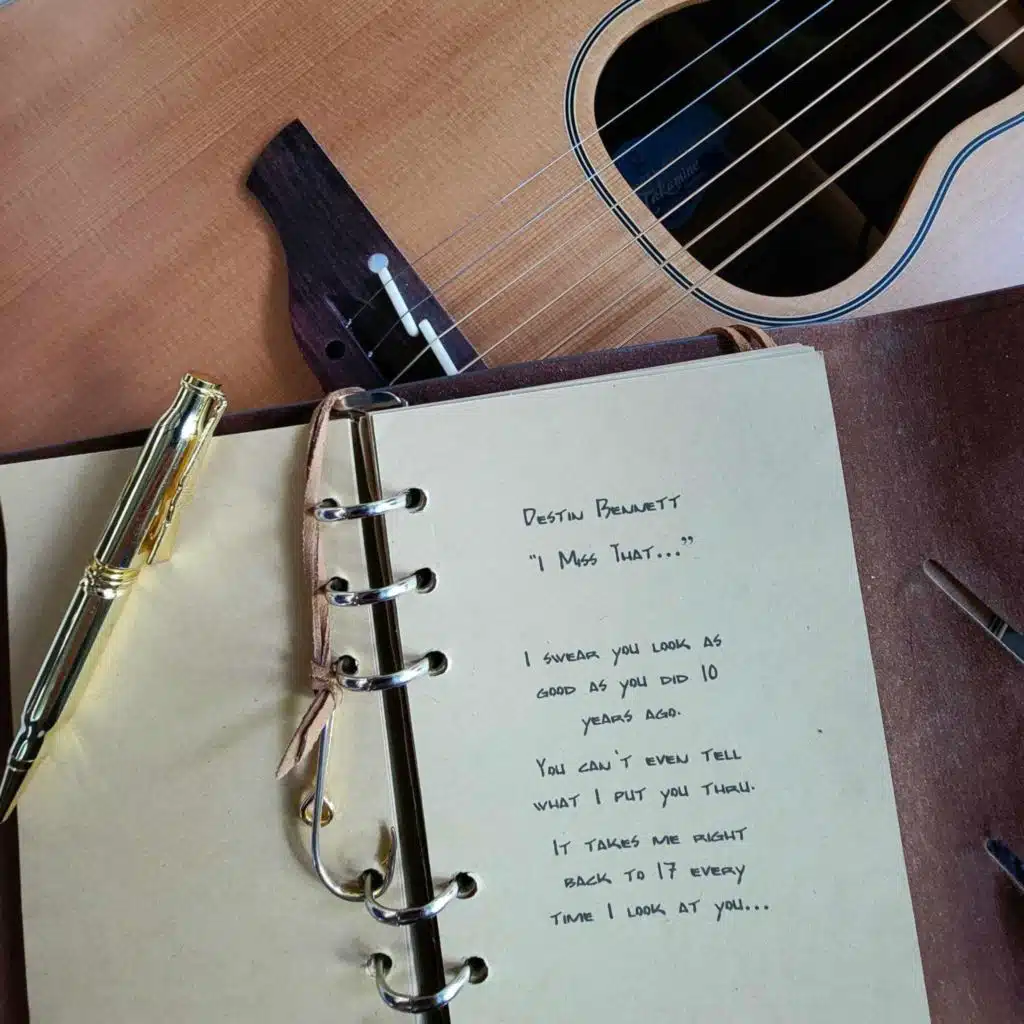 Takamine
DESTIN BENNETT
"I MISS THAT..."
I SWEAR YOU LOOK AS
GOOD AS YOU DID 10
YEARS AGO.
YOU CAN'T EVEN TELL
WHAT I PUT YOU THRU.
IT TAKES ME RIGHT
BACK TO 17 EVERY
TIME I LOOK AT YOU...